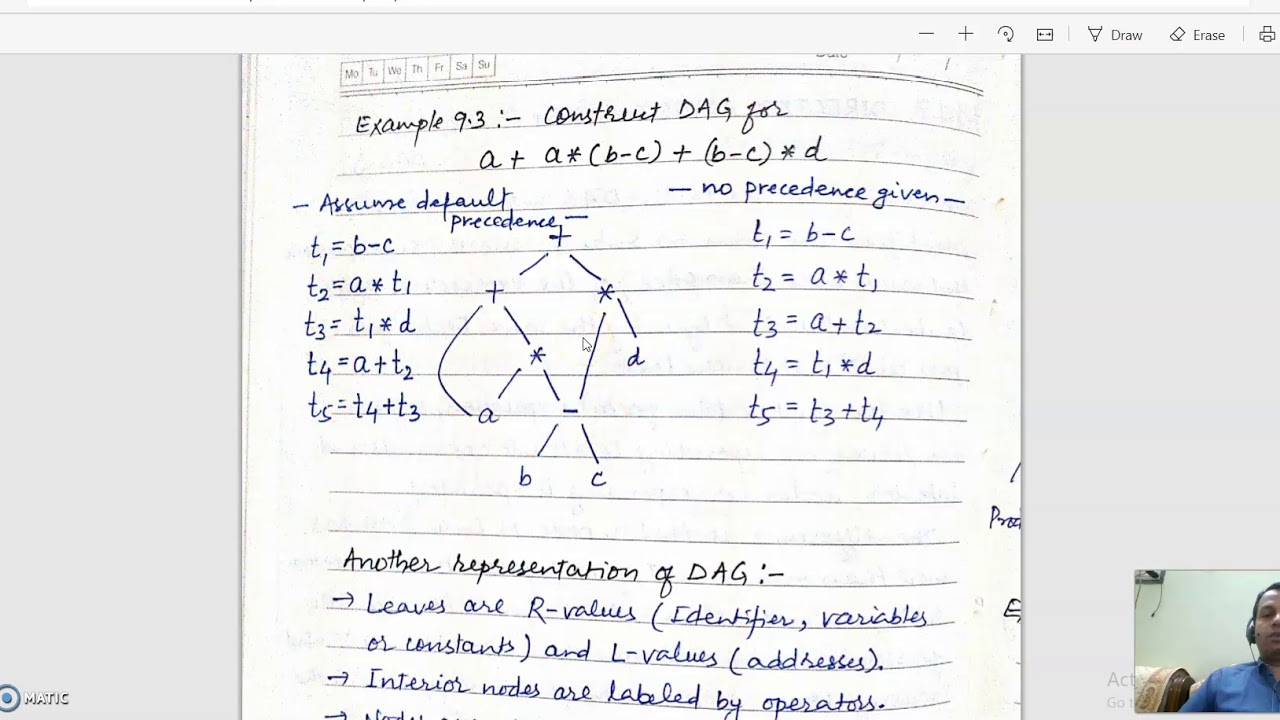 Draw
Erase
Mo Tu We Th Fr Sa Su
Example 9.3 :- Construct DAG for
a + a*(b-c) + (b-c) * d
- Assume default precedence -
- no precedence given -
t1 = b-c
t2 = a * t1
t3 = t1 * d
t4 = a + t2
t5 = t4 + t3
+
+ *
* d
a -
b c
t1 = b-c
t2 = a * t1
t3 = a + t2
t4 = t1 * d
t5 = t3 + t4
Another representation of DAG :-
→ Leaves are R-values (Identifier, variables
or constants) and L-values (addresses).
→ Interior nodes are labeled by operators.
MATIC